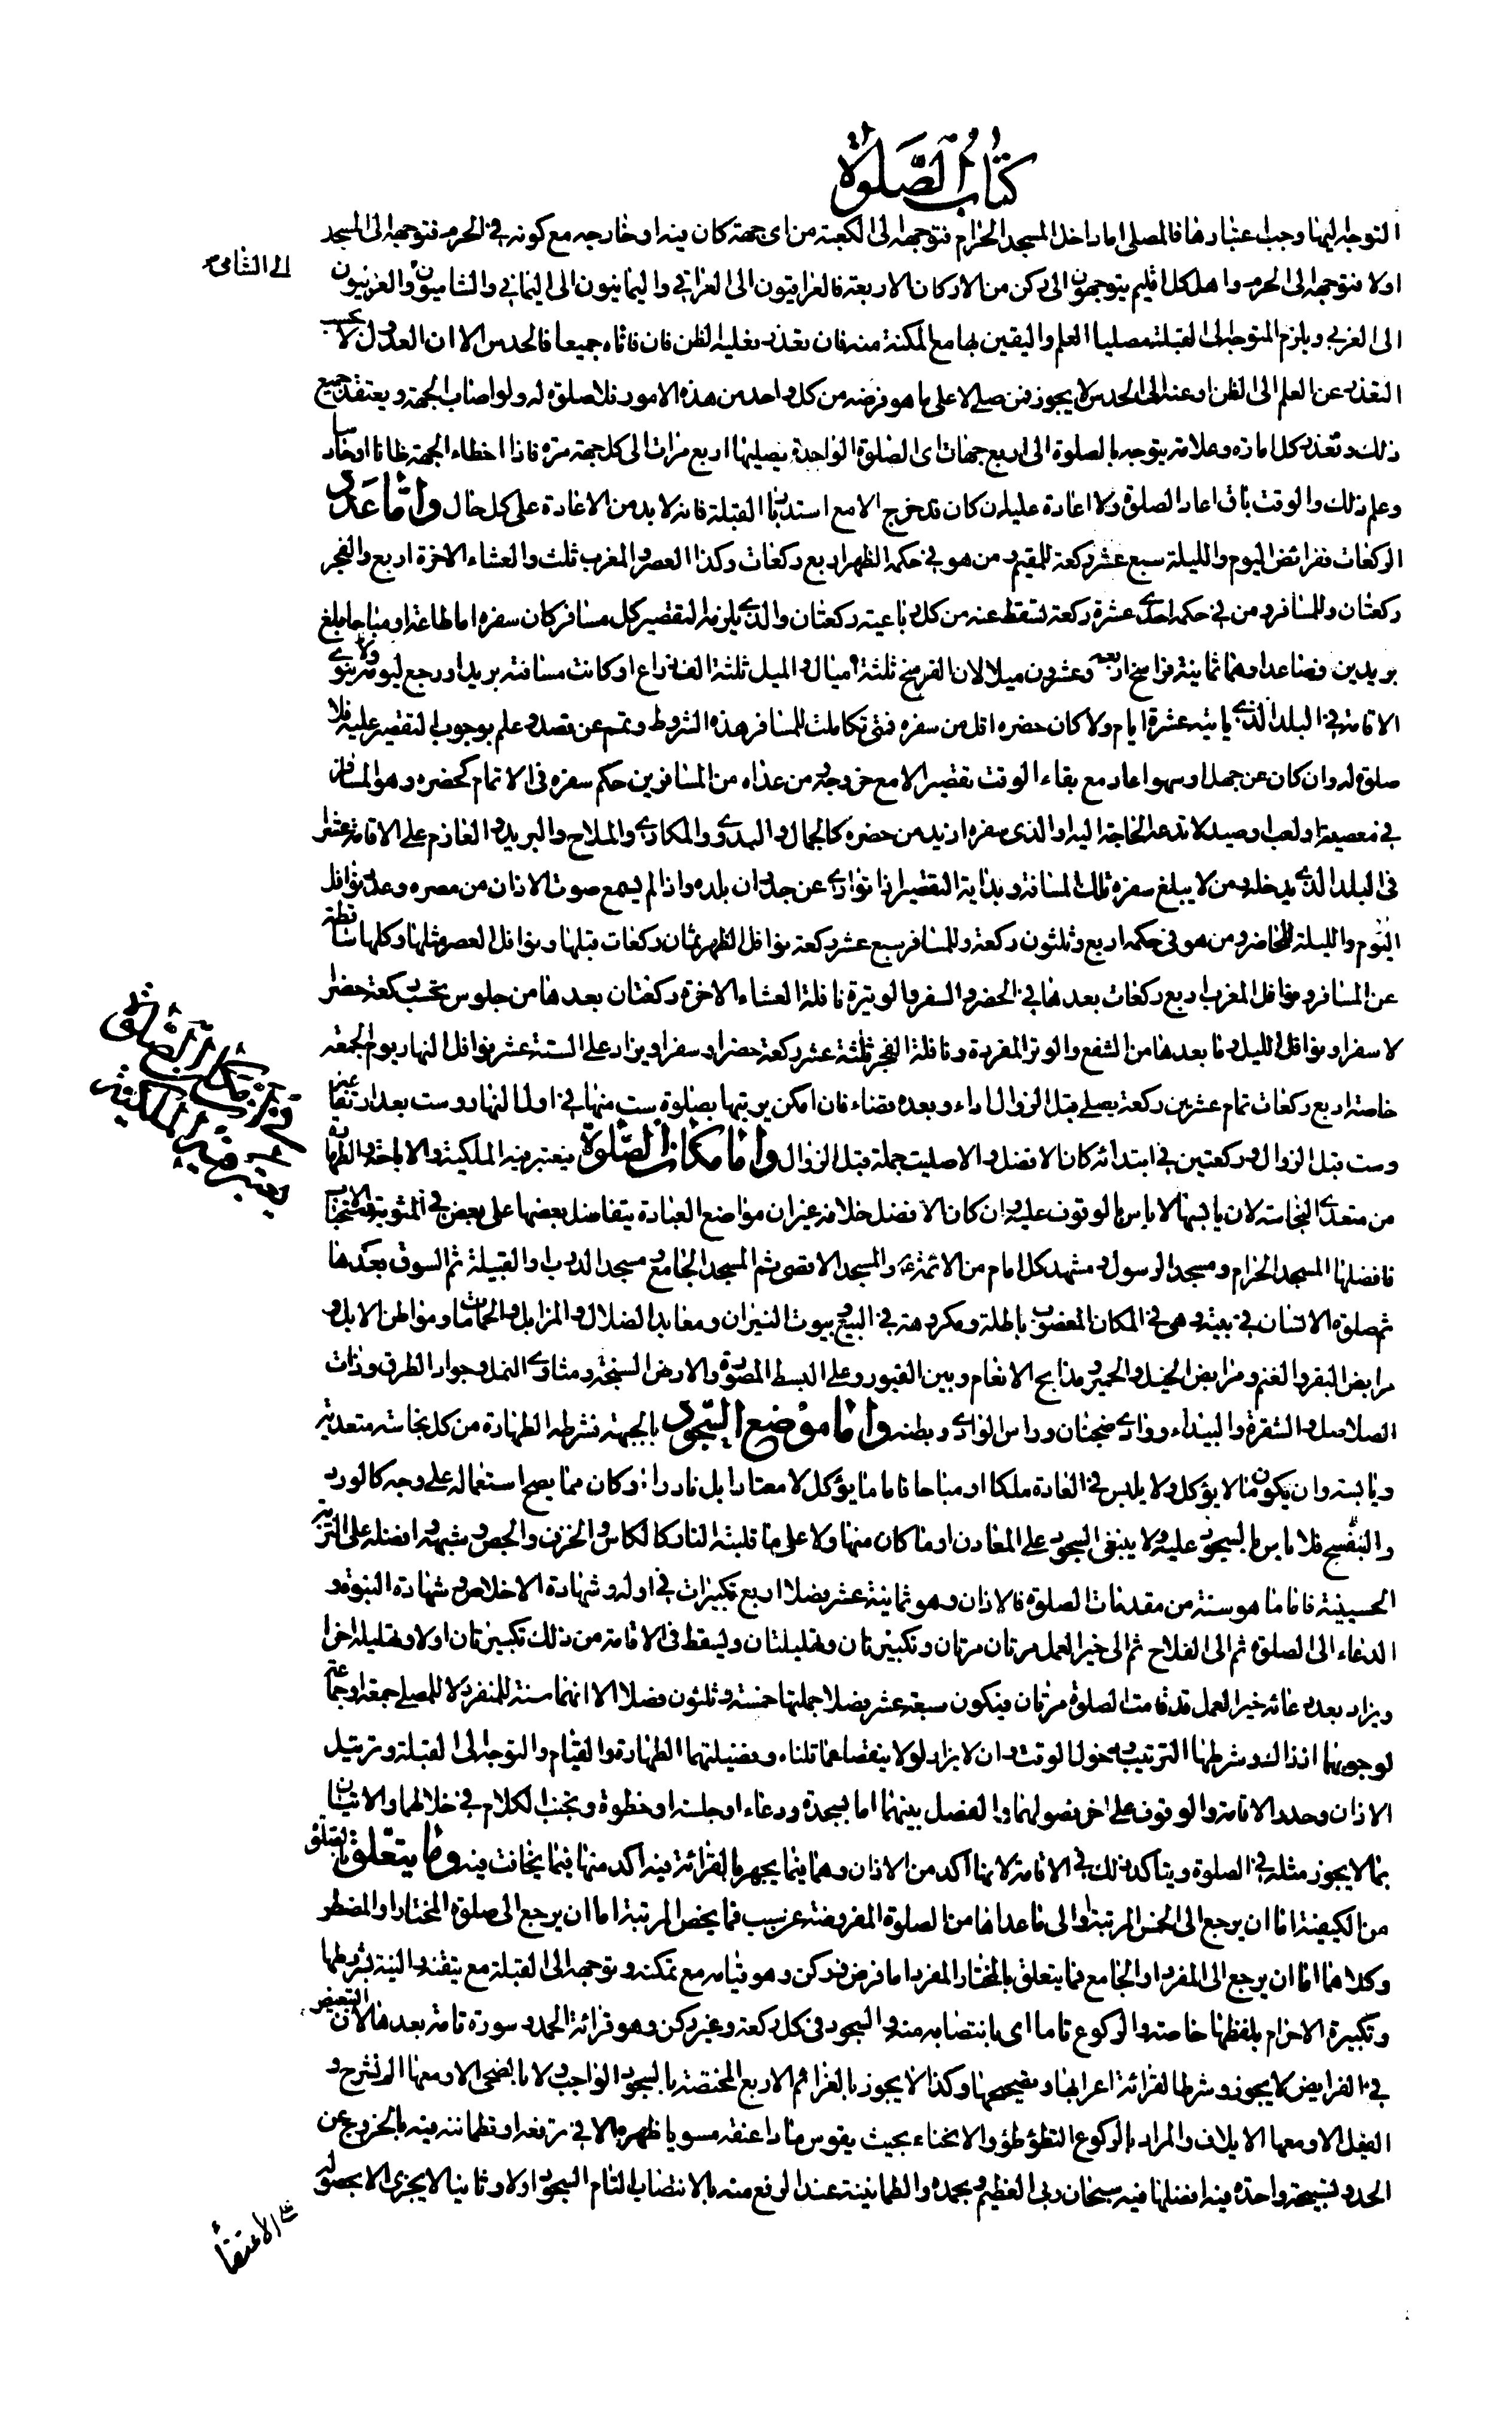 كتاب الصلوة
التوجه اليها وجب اعتبارها فالمصلى اما داخل المسجد الحرام فتوجهه الى الكعبة من اى جهة كان منه او خارجه مع كونه فى الحرم فتوجهه الى المسجد
اولا فتوجهه الى الحرم واهل كل اقليم يتوجهون الى ركن من الاركان الاربعة فالعراقيون الى العراقي واليمانيون الى اليماني والشاميون والغربيون
الى الشامى
الى الغربى ويلزم المتوجه الى القبلة مصليا العلم واليقين بها مع المكنة منه فان تعذر فغلبة الظن فان فاتاه جميعا فالحدس الا ان العدول لا بحسب
التعذر عن العلم الى الظن او عنه الى الحدس لا يجوز فمن صلى لا على ما هو فرضه من كل واحد من هذه الامور فلا صلوة له ولو اصاب الجهة وبفقد جميع
ذلك وتعذر كل امارة وعلامة يتوجه بالصلوة الى اربع جهات اى الصلوة الواحدة يصليها اربع مرات الى كل جهة مرة فاذا اخطاء الجهة ظانا او حادسا
وعلم ذلك والوقت باق اعاد الصلوة ولا اعادة عليه ان كان قد خرج الا مع استدبار القبلة فانه لا بد من الاعادة على كل حال واما عدد
الركعات ففرائض اليوم والليلة سبع عشر ركعة للمقيم ومن هو فى حكمه الظهر اربع ركعات وكذا العصر والمغرب ثلث والعشاء الاخرة اربع والفجر
ركعتان وللمسافر ومن فى حكمه احدى عشرة ركعة تسقط عنه من كل رباعية ركعتان والذى يلزمه التقصير كل مسافر كان سفره اما طاعة او مباحا بلغ
بريدين فصاعدا وهما ثمانية فراسخ اربعة وعشرون ميلا لان الفرسخ ثلثة اميال والميل ثلثة الف ذراع او كانت مسافته بريدا ورجع ليومه ولا ينوى
الاقامة فى البلد الذى ياتيه عشرة ايام ولا كان حضره اقل من سفره فمتى تكاملت للمسافر هذه الشروط وتمم عن قصد وعلم بوجوب التقصير عليه فلا
صلوة له وان كان عن جهل او سهو اعاد مع بقاء الوقت تقصيرا لا مع خروجه ومن عداه من المسافرين حكم سفره فى الاتمام كحضره وهو المسافر
فى معصية او لعب او صيد لا تدعه الحاجة اليه او الذى سفره ازيد من حضره كالجمال والبدوى والمكارى والملاح والبريد والعازم على الاقامة عشرا
فى البلد الذى يدخله ومن لا يبلغ سفره تلك المسافة وبداية التقصير اذا توارى عن جدران بلده واذا لم يسمع صوت الاذان من مصره وعدد نوافل
اليوم والليلة للحاضر ومن هو فى حكمه اربع وثلثون ركعة وللمسافر سبع عشر ركعة نوافل الظهر ثمان ركعات قبلها ونوافل العصر مثلها وكلها ساقطة
عن المسافر ونوافل المغرب اربع ركعات بعدها فى الحضر والسفر والوتيرة نافلة العشاء الاخرة ركعتان بعدها من جلوس تحسب بركعة حضرا
لا سفرا ونوافل الليل وما بعدها من الشفع والوتر المفردة ونافلة الفجر ثلثة عشر ركعة حضرا وسفرا ويزاد على الستة عشر نوافل النهار يوم الجمعة
خاصة اربع ركعات تمام عشرين ركعة يصلى قبل الزوال اداء وبعده قضاء فان امكن ترتيبها بصلوة ست منها فى اول النهار وست بعد ارتفاعه
وست قبل الزوال وركعتين فى ابتدائه كان الافضل والا صليت جملة قبل الزوال واما مكان الصلوة فيعتبر فيه الملكية والاباحة والطهارة
من متعدى النجاسة لان يابسها لا باس بالوقوف عليه وان كان الافضل خلافه غير ان مواضع العبادة يتفاضل بعضها على بعض فى المثوبة والاستحباب
فافضلها المسجد الحرام ومسجد الرسول ومشهد كل امام من الائمة ع والمسجد الاقصى ثم المسجد الجامع ومسجد الدرب والقبيلة ثم السوق بعدها
ثم صلوة الانسان فى بيته وهى فى المكان المغصوب باطلة ومكروهة فى البيع وبيوت النيران ومعابد الضلال والمزابل والحمامات ومواطن الابل و
مرابض البقر والغنم ومرابض الخيل والحمير ومذابح الانعام وبين القبور وعلى البسط المصورة والارض السبخة ومثاوى النمل وجواد الطرق وذات
الصلاصل والشقرة والبيداء ووادى ضجنان وراس الوادى وبطنه واما موضع السجود بالجبهة فشرطه الطهارة من كل نجاسة متعدية
ويابسة وان يكون مما لا يؤكل ولا يلبس فى العادة ملكا او مباحا فاما ما يؤكل لا معتادا بل نادرا او كان مما يصح استعماله على وجه كالورد
والبنفسج فلا باس بالسجود عليه ولا ينبغى السجود على المعادن او ما كان منها ولا على ما قلبته النار كالكاس والخزف والجص وشبهه وافضله على التربة
الحسينية فاما ما هو سنة من مقدمات الصلوة فالاذان وهو ثمانية عشر فصلا اربع تكبيرات فى اوله وشهادة الاخلاص وشهادة النبوة و
الدعاء الى الصلوة ثم الى الفلاح ثم الى خير العمل مرتان مرتان وتكبيرتان وتهليلتان وليسقط فى الاقامة من ذلك تكبيرتان اولا وتهليلة اخرا
ويزاد بعد دعائه خير العمل قد قامت الصلوة مرتان فيكون سبعة عشر فصلا جملتها خمسة وثلثون فصلا الا انهما سنة للمنفرد لا للمصلى جمعة او جماعة
لوجوبهما اذ ذاك وشرطهما الترتيب ودخول الوقت وان لا يزاد ولا ينقصا عما قلناه وفضيلتهما الطهارة والقيام والتوجه الى القبلة وترتيل
الاذان وحدر الاقامة والوقوف على اخر فصولهما والفصل بينهما اما بسجدة ودعاء او جلسة او خطوة وتجنب الكلام فى خلالهما والاتيان
بما لا يجوز مثله فى الصلوة ويتاكد ذلك فى الاقامة لانها اكد من الاذان وهما فيما يجهر بالقرائة فيه اكد منها فيما يخافت فيه وما يتعلق بالصلوة
من الكيفية اما ان يرجع الى الخمس المرتبة او الى ما عداها من الصلوة المفروضة عن سبب فما يخص المرتبة اما ان يرجع الى صلوة المختار او المضطر
وكلاهما اما ان يرجع الى المفرد او الجامع فما يتعلق بالمختار المفرد اما فرض فركن وهو قيامه مع تمكنه وتوجهه الى القبلة مع تيقنه والنية بشروطها
وتكبيرة الاحرام بلفظها خاصة والركوع تاما اى بانتصابه منه والسجود فى كل ركعة وغير ركن وهو قرائة الحمد وسورة تامة بعدها لان التبعيض
فى الفرايض لا يجوز وشرط القرائة اعرابها وتصحيحها وكذا لا يجوز بالعزائم الاربع المختصة بالسجود الواجب ولا بالضحى الا ومعها الم نشرح و
الفيل الا ومعها الايلاف والمراد بالركوع التطؤطؤ والانحناء بحيث يقوس مادا عنقه مسويا ظهره الا فى ترفعه او تطامنه فيه بالخروج عن
الحد وتسبيحة واحدة فيه افضلها فيه سبحان ربى العظيم وبحمده والطمانينة عند الرفع منه بالانتصاب التام السجود اولا وثانيا لا يجزى الا بحصوله